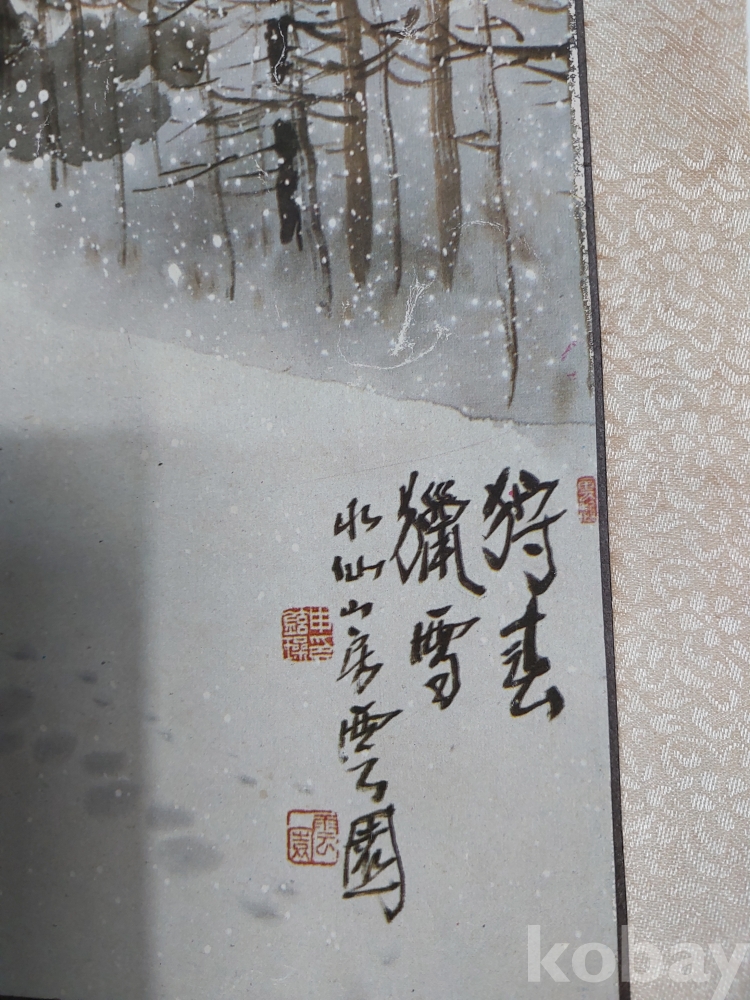 狩春
獵雪
水仙山房雲園
kobay